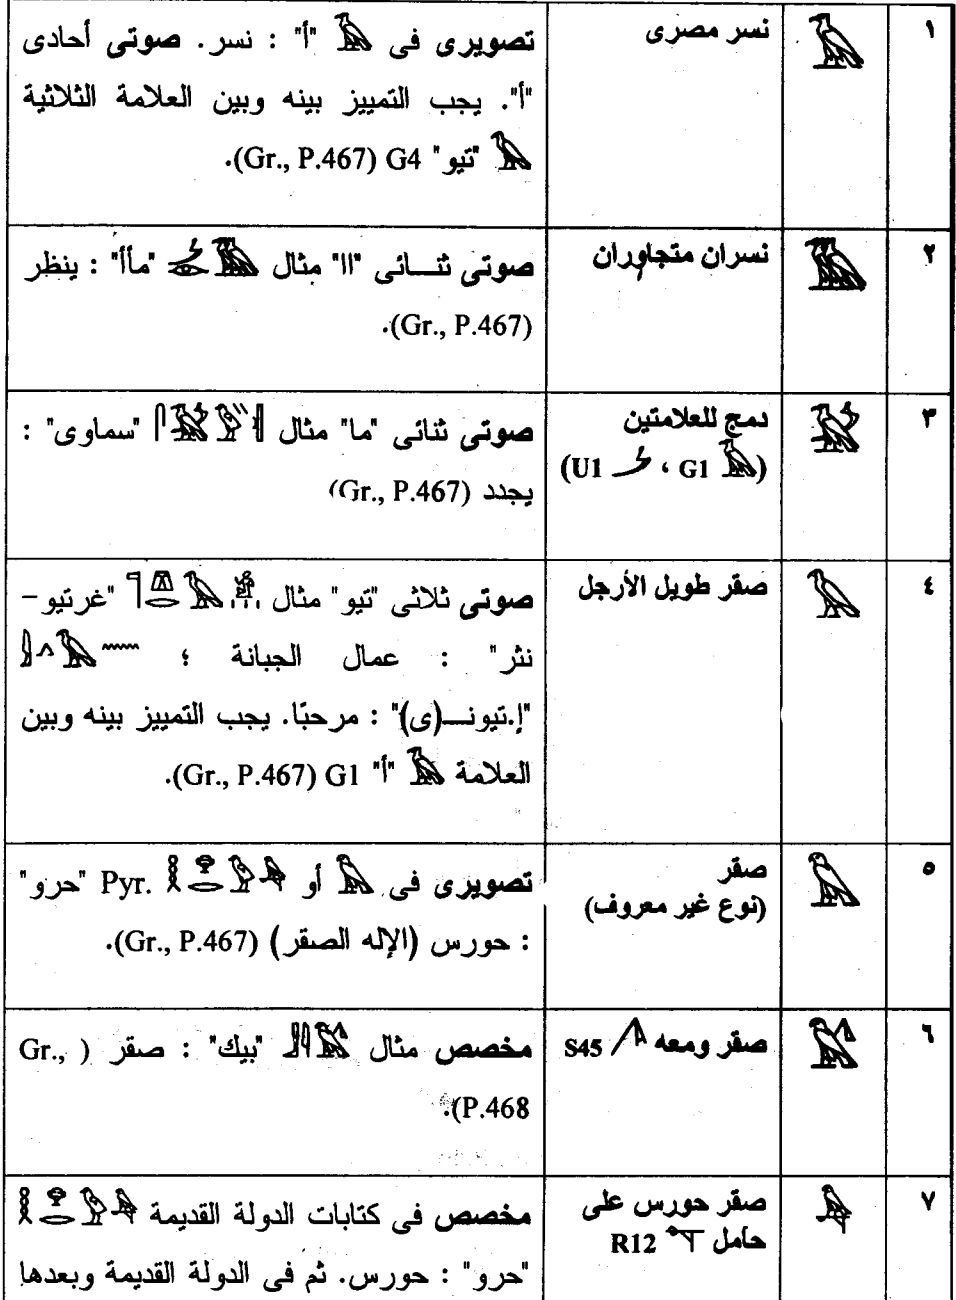 ١ 𓄿 نسر مصرى تصويرى فى 𓄿 "أ" : نسر. صوتى أحادى
"أ". يجب التمييز بينه وبين العلامة الثلاثية
𓅂 "تيو" G4 (Gr., P.467).
٢ 𓅀 نسران متجاوران صوتى ثنـائى "اا" مثال "مأأ" : ينظر
(Gr., P.467).
٣ 𓅁 دمج للعلامتين صوتى ثنائى "ما" مثال "سماوى" :
(𓄿 G1 ، 𓌳 U1) يجدد (Gr., P.467)
٤ 𓅂 صقر طويل الأرجل صوتى ثلاثى "تيو" مثال "غرتيو –
نثر" : عمال الجبانة ؛
"إ.تيونـ(ى)" : مرحبًا. يجب التمييز بينه وبين
العلامة 𓄿 "أ" G1 (Gr., P.467).
٥ 𓅃 صقر تصويرى فى 𓅃 أو Pyr. "حرو"
(نوع غير معروف) : حورس (الإله الصقر) (Gr., P.467).
٦ 𓅄 صقر ومعه S45 مخصص مثال "بيك" : صقر (Gr.,
P.468).
٧ 𓅆 صقر حورس على مخصص فى كتابات الدولة القديمة
حامل R12 "حرو" : حورس. ثم فى الدولة القديمة وبعدها